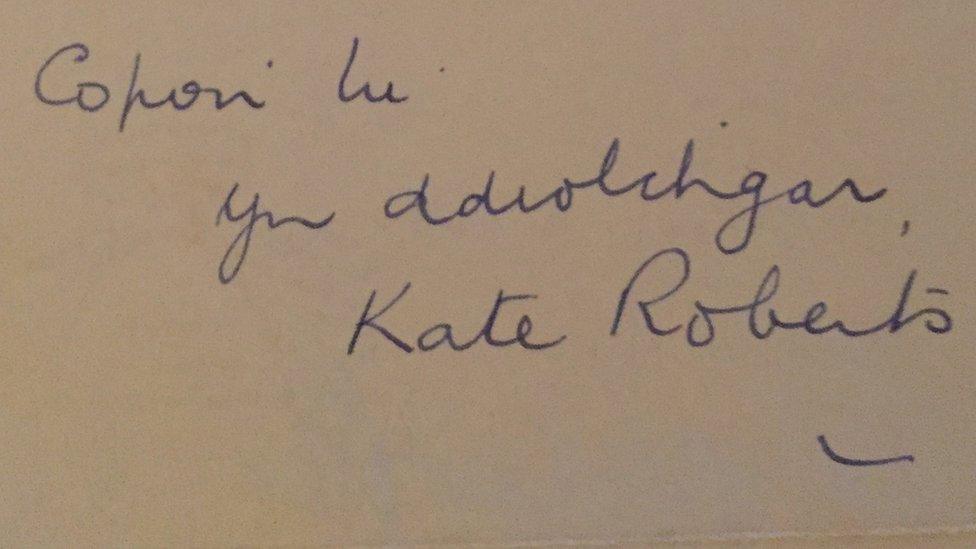 Cofion lu
yn ddiolchgar,
Kate Roberts